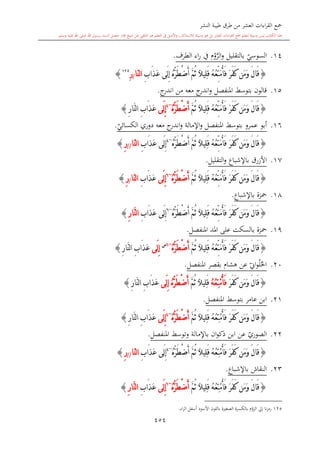 جمع القراءات العشر من طرق طيبة النشر
١٤. السوسيّ بالتقليل والرَّوْم في راء الطرف.
﴿ قَالَ وَمَن كَفَرَ فَأُمَتِّعُهُۥ قَلِيلًا ثُمَّ أَضْطَرُّهُۥٓ إِلَىٰ عَذَابِ النَّارِ ١٢٥ ﴾
١٥. قالون بتوسط المنفصل واندرج معه من اندرج.
﴿ قَالَ وَمَن كَفَرَ فَأُمَتِّعُهُۥ قَلِيلًا ثُمَّ أَضْطَرُّهُۥٓ إِلَىٰ عَذَابِ النَّارِ ﴾
١٦. أبو عمرو بتوسط المنفصل والإمالة واندرج معه دوري الكسائيّ.
﴿ قَالَ وَمَن كَفَرَ فَأُمَتِّعُهُۥ قَلِيلًا ثُمَّ أَضْطَرُّهُۥٓ إِلَىٰ عَذَابِ النَّارِ ﴾
١٧. الأزرق بالإشباع والتقليل.
﴿ قَالَ وَمَن كَفَرَ فَأُمَتِّعُهُۥ قَلِيلًا ثُمَّ أَضْطَرُّهُۥٓ إِلَىٰ عَذَابِ النَّارِ ﴾
١٨. حمزة بالإشباع.
﴿ قَالَ وَمَن كَفَرَ فَأُمَتِّعُهُۥ قَلِيلًا ثُمَّ أَضْطَرُّهُۥٓ إِلَىٰ عَذَابِ النَّارِ ﴾
١٩. حمزة بالسكت على المد المنفصل.
﴿ قَالَ وَمَن كَفَرَ فَأُمَتِّعُهُۥ قَلِيلًا ثُمَّ أَضْطَرُّهُۥٓ إِلَىٰ عَذَابِ النَّارِ ﴾
٢٠. الحُلْوانيّ عن هشام بقصر المنفصل.
﴿ قَالَ وَمَن كَفَرَ فَأُمَتِّعُهُۥ قَلِيلًا ثُمَّ أَضْطَرُّهُۥٓ إِلَىٰ عَذَابِ النَّارِ ﴾
٢١. ابن عامر بتوسط المنفصل.
﴿ قَالَ وَمَن كَفَرَ فَأُمَتِّعُهُۥ قَلِيلًا ثُمَّ أَضْطَرُّهُۥٓ إِلَىٰ عَذَابِ النَّارِ ﴾
٢٢. الصوريّ عن ابن ذكوان بالإمالة وتوسط المنفصل.
﴿ قَالَ وَمَن كَفَرَ فَأُمَتِّعُهُۥ قَلِيلًا ثُمَّ أَضْطَرُّهُۥٓ إِلَىٰ عَذَابِ النَّارِ ﴾
٢٣. النقاش بالإشباع.
﴿ قَالَ وَمَن كَفَرَ فَأُمَتِّعُهُۥ قَلِيلًا ثُمَّ أَضْطَرُّهُۥٓ إِلَىٰ عَذَابِ النَّارِ ﴾
١٢٥ رمزنا إلى الروم بالكسرة الصغيرة باللون الأسود أسفل الراء.
٤٥٤